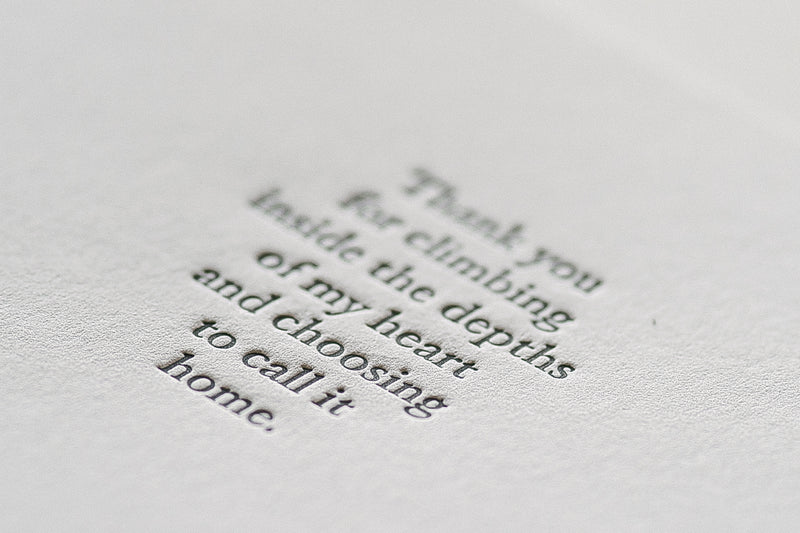 Thank you
for climbing
inside the depths
of my heart
and choosing
to call it
home.